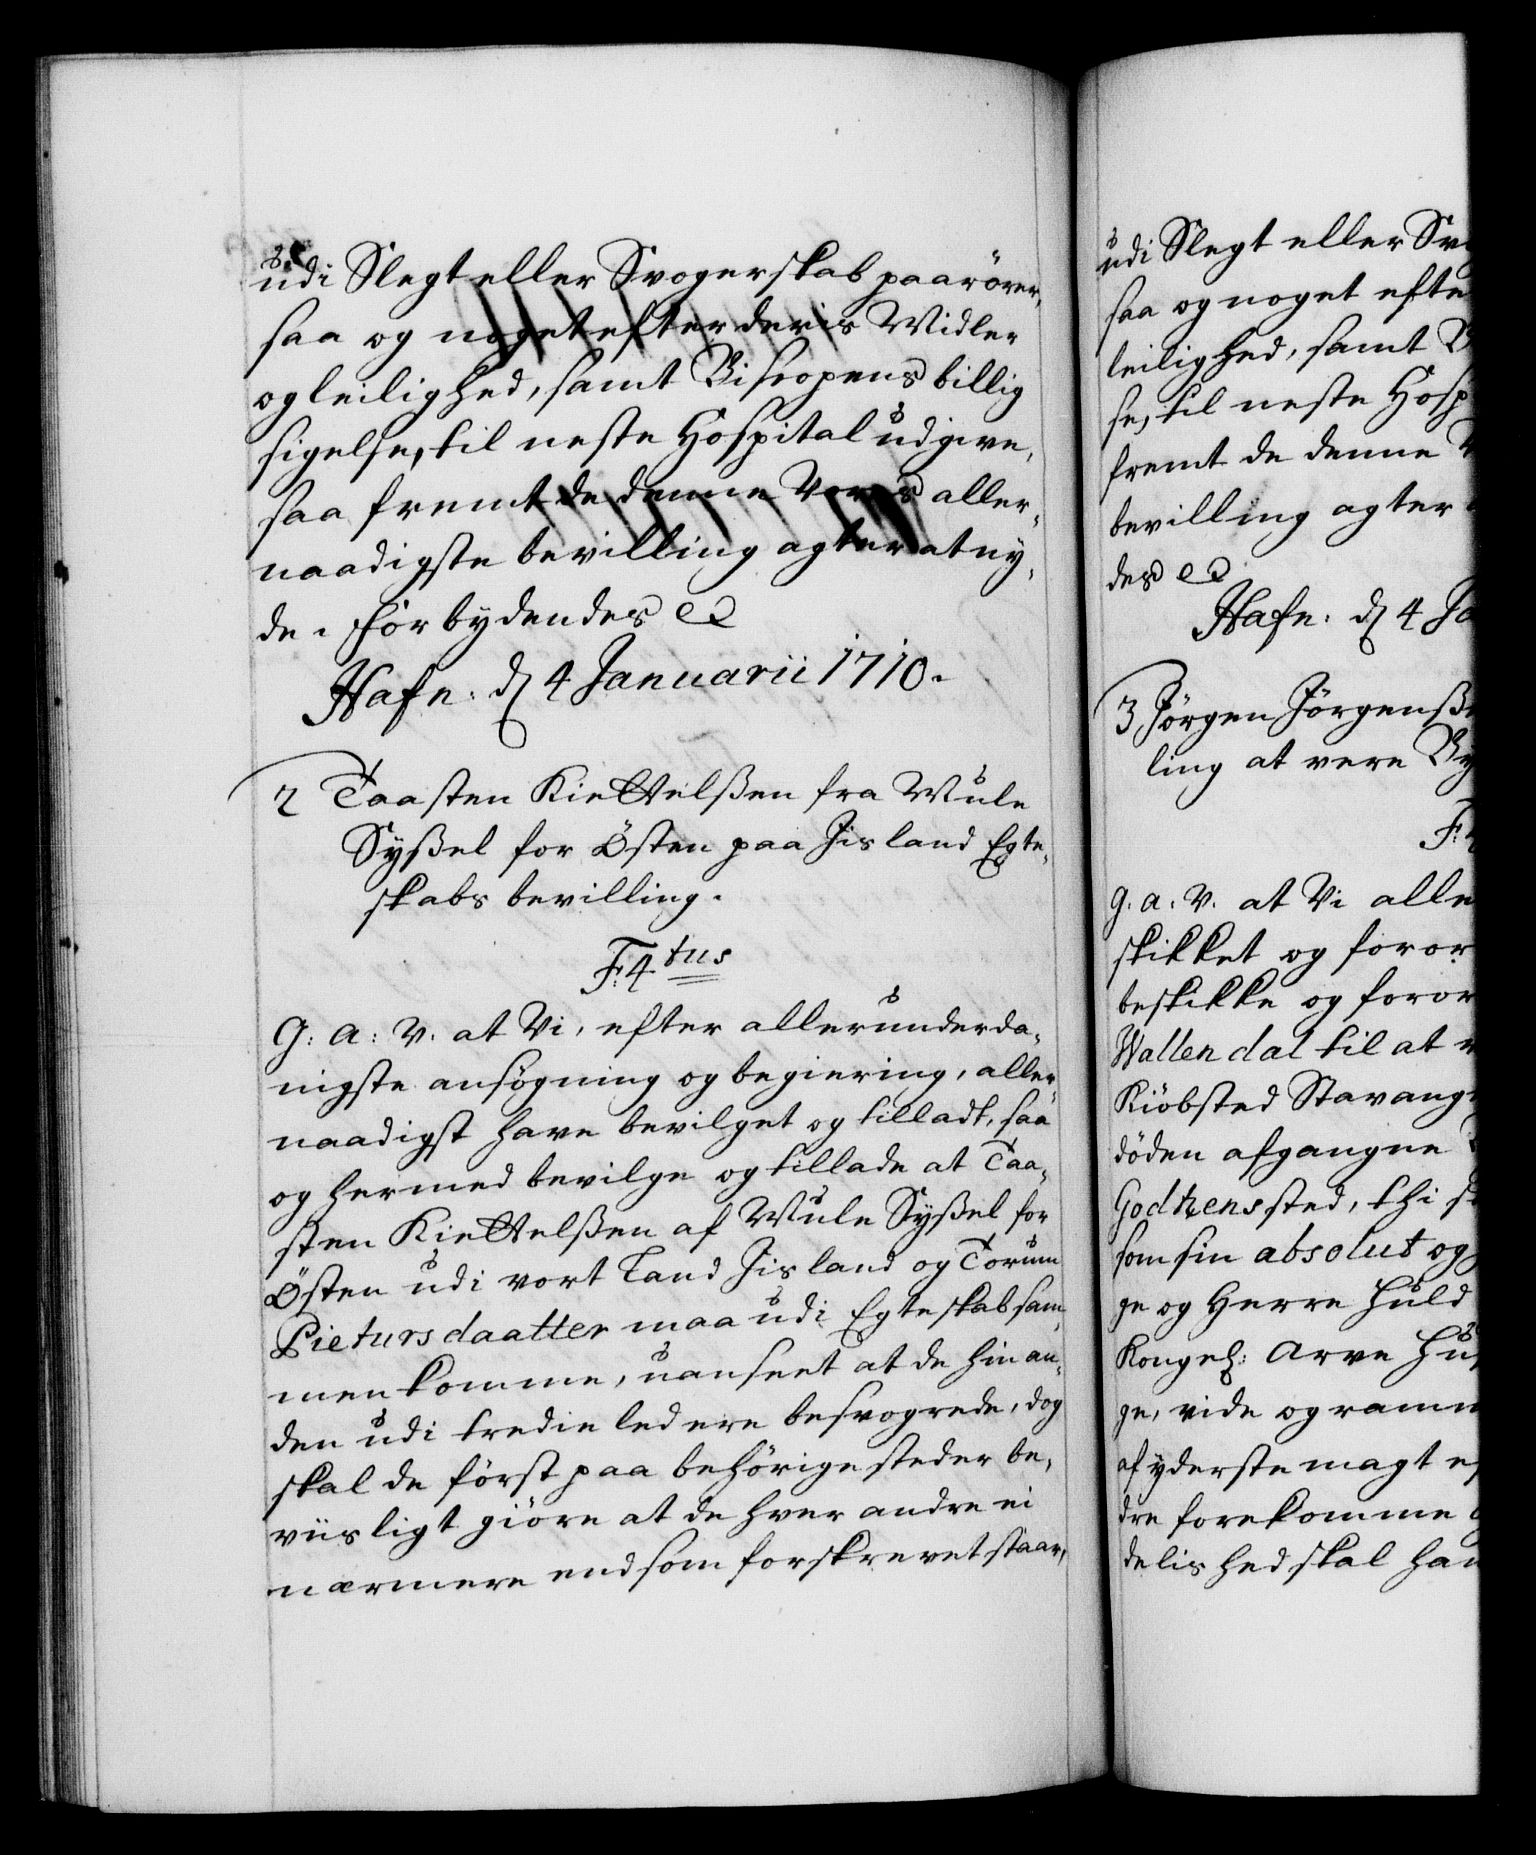 udi Slegt eller Svogerskab paarörer,
saa og noget efter deris Midler
og leilighed, samt Biscopens billig
sigelse, til neste Hospital udgive,
saa fremt de denne Vores aller,
naadigste bevilling agter at ny,
de. Forbydendes etc
Hafn: d 4 Januarii 1710.
2 Taasten Kiettelßen fra Mule
Syßel for Östen paa Jisland Egte,
skabs bevilling.
F: 4tus
G: A: V. at Vi, efter allerunderda,
nigste ansögning og begiering, aller
naadigst have bevilget og tilladt, saa
og hermed bevilge og tillade at Taa,
sten Kiettelßen af Mule Syßel for
Östen udi vort Land Jisland og Torum
Pieturs daatter maa udi Egteskab sam,
men komme, uanseet at de hinan,
den udi tredie led ere besvogrede, dog
skal de först paa behörige steder be,
viisligt giöre at de hver andre ei
nærmere end som forskrevet staar,
udi Slegt eller Svo
saa og noget efte
leilighed, samt B
se, til neste Hosp
fremt de denne V
bevilling agter
des etc
Hafn: d 4 Ja
3 Jörgen Jörgenße
ling at vere By
F: 4
G. A. V. at Vi alle
skikket og foror
beskikke og foror
Wallendal til at v
Kiöbsted Stavang
döden afgangne
Godtzensted, thi s
som sin absolut og
ge og Herre huld
Kongel: Arve Hu
ge, vide og ramm
af yderste magt ef
dre forekomme
delished skal han